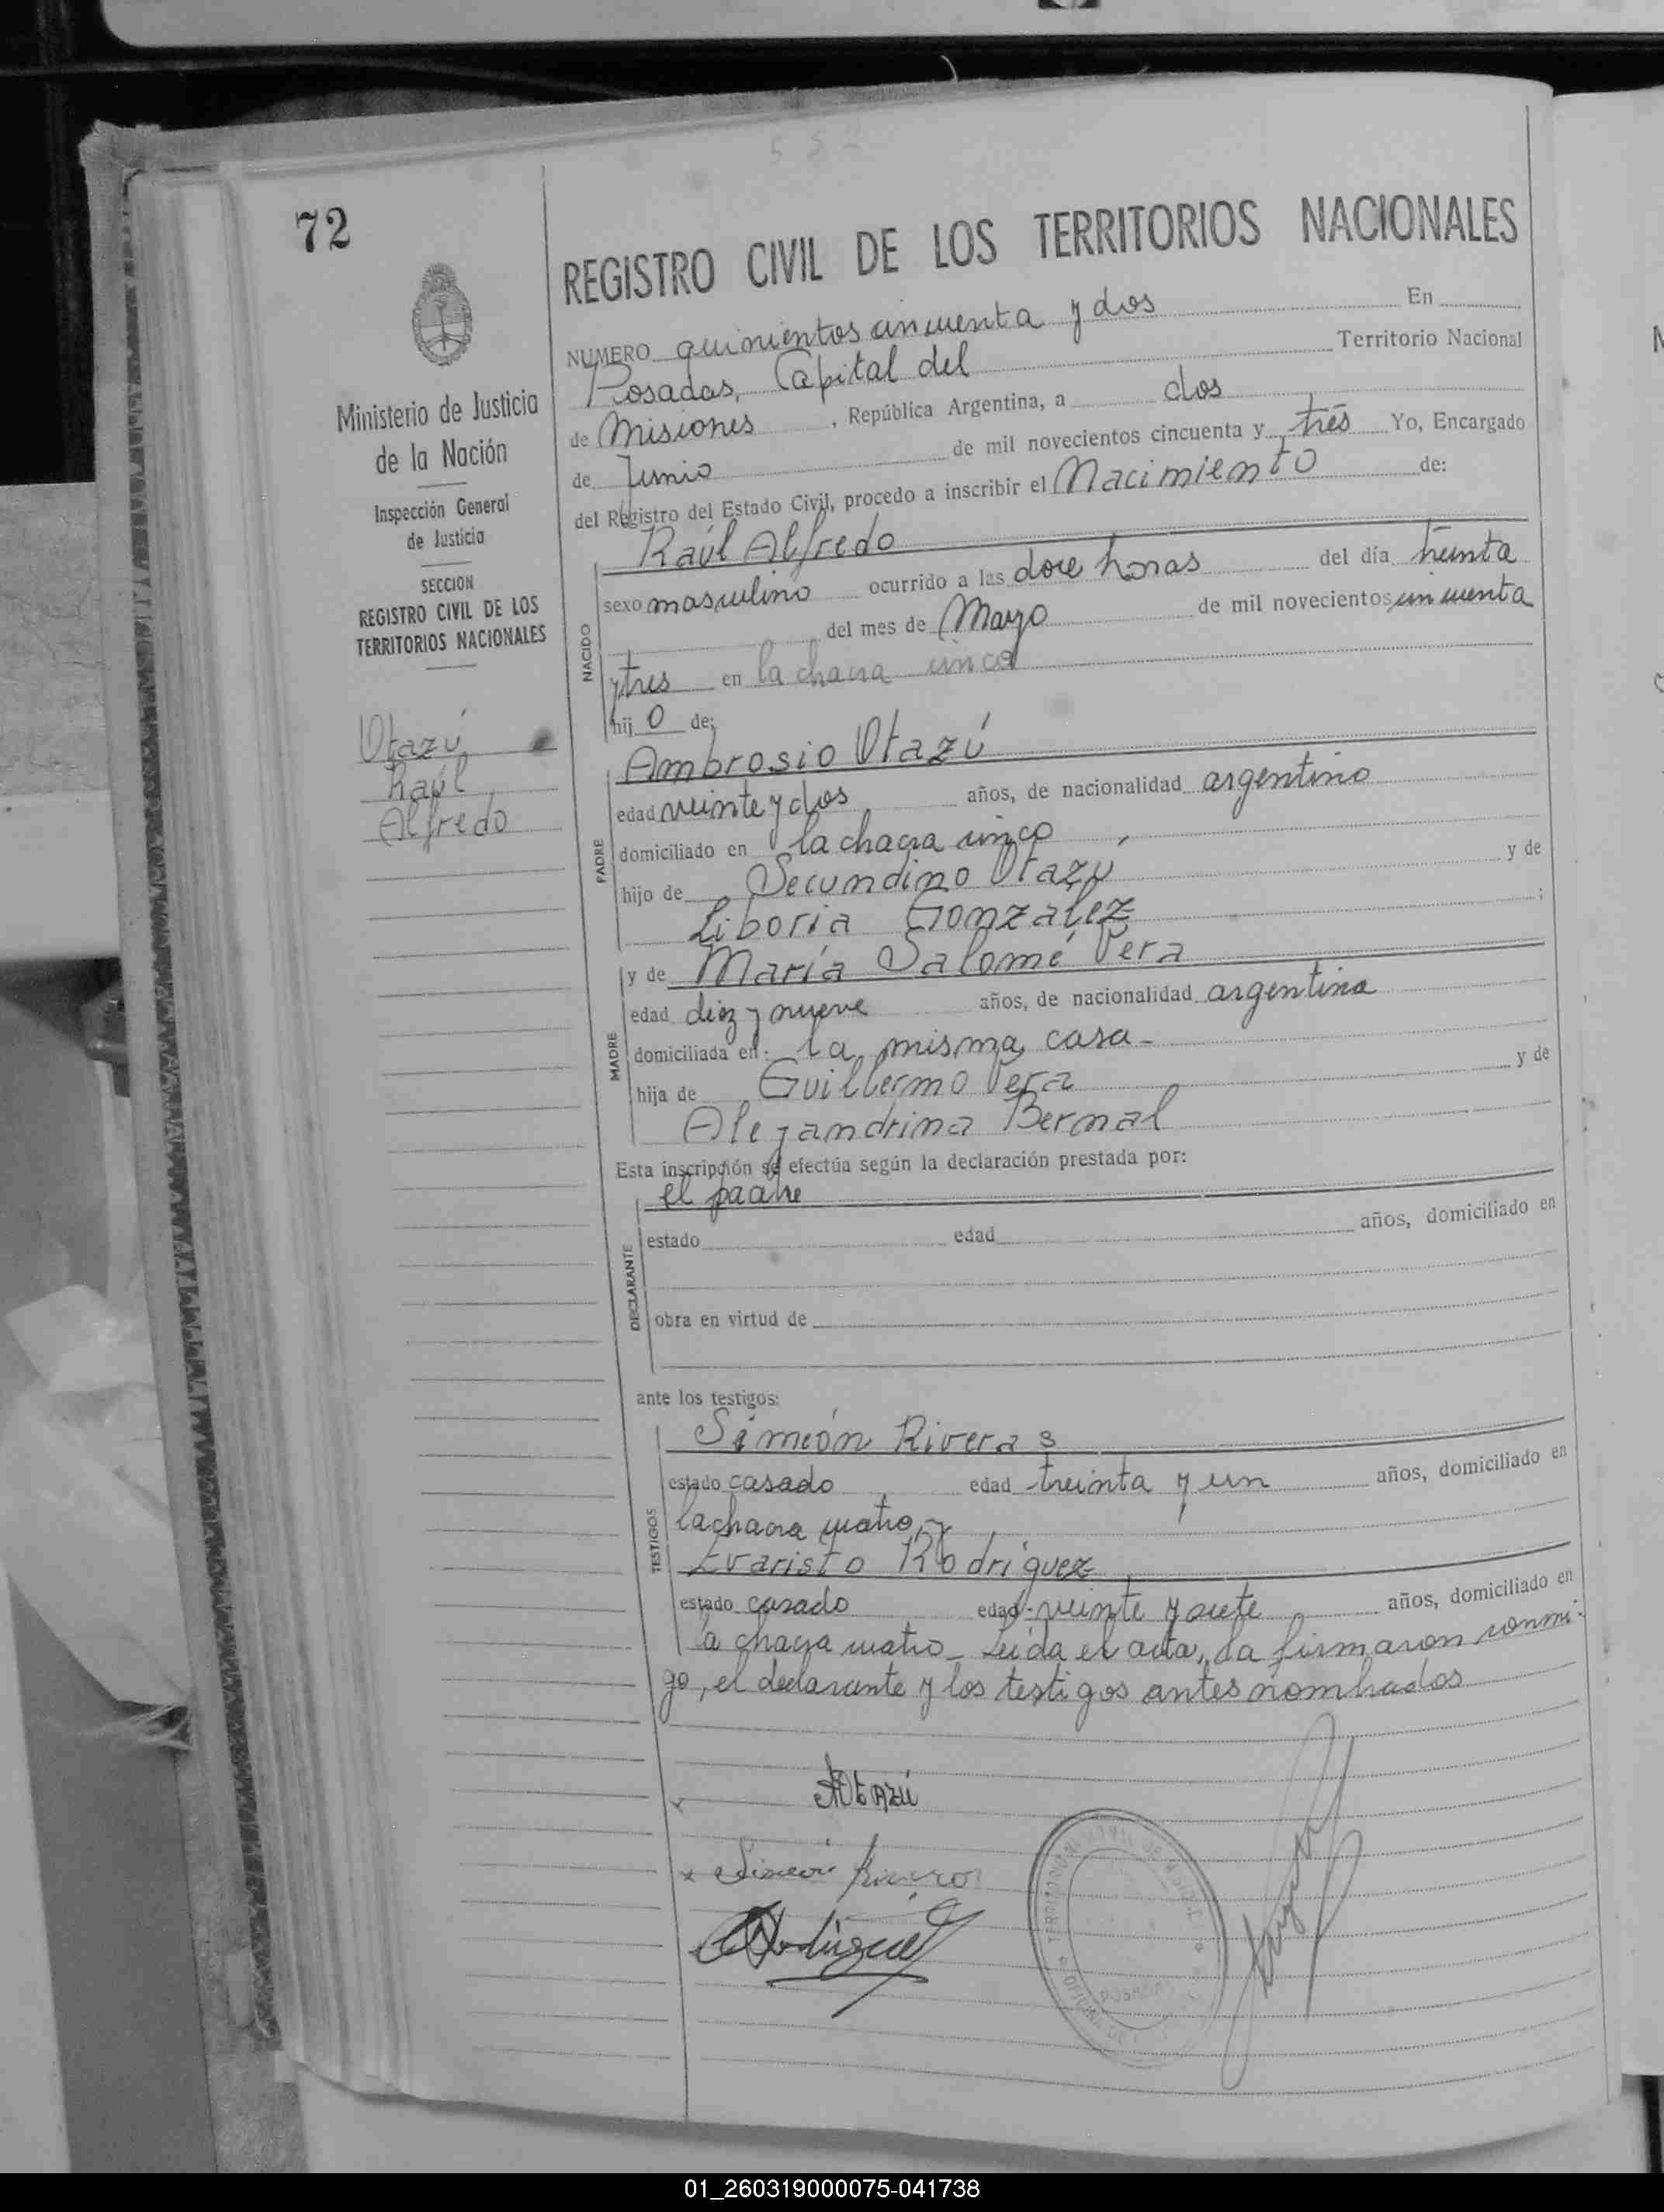 552
72
REGISTRO CIVIL DE LOS TERRITORIOS NACIONALES
Ministerio de Justicia
de la Nación
Inspección General
de Justicia
SECCION
REGISTRO CIVIL DE LOS
TERRITORIOS NACIONALES
Otazú
Raúl
Alfredo
NUMERO quinientos cincuenta y dos En
Posadas, Capital del Territorio Nacional
de Misiones, República Argentina, a dos
de Junio de mil novecientos cincuenta y tres Yo, Encargado
del Registro del Estado Civil, procedo a inscribir el Nacimiento de:
NACIDO
Raúl Alfredo
sexo masculino ocurrido a las doce horas del día treinta
del mes de Mayo de mil novecientos cincuenta
y tres en la chacra cinco
hij o de:
PADRE
Ambrosio Otazú
edad veinte y dos años, de nacionalidad argentino
domiciliado en la chacra cinco
hijo de Secundino Otazú y de
Liboria Gonzalez ;
MADRE
y de María Salomé Vera
edad diez y nueve años, de nacionalidad argentina
domiciliada en: la misma casa -
hija de Guillermo Vera y de
Alejandrina Bernal
Esta inscripción se efectúa según la declaración prestada por:
DECLARANTE
el padre
estado edad años, domiciliado en
obra en virtud de
ante los testigos:
TESTIGOS
Simeón Riveras
estado casado edad treinta y un años, domiciliado en
la chacra cuatro, y
Evaristo Rodriguez
estado casado edad veinte y siete años, domiciliado en
la chacra cuatro - Leída el acta, la firmaron conmi-
go, el declarante y los testigos antes nombrados
AOtazú
OFICINA DE
POSADAS
01_260319000075-041738